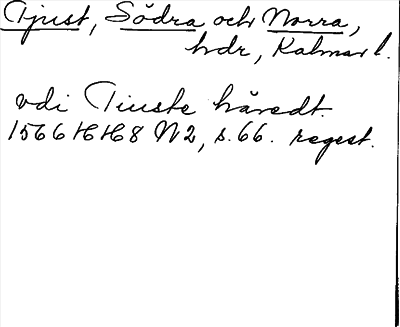 Tjust, Södra och Norra,
hdr, Kalmar l.
vdi Tiuste häredt.
1566 16/6 HH68 N2, s. 66. regest.